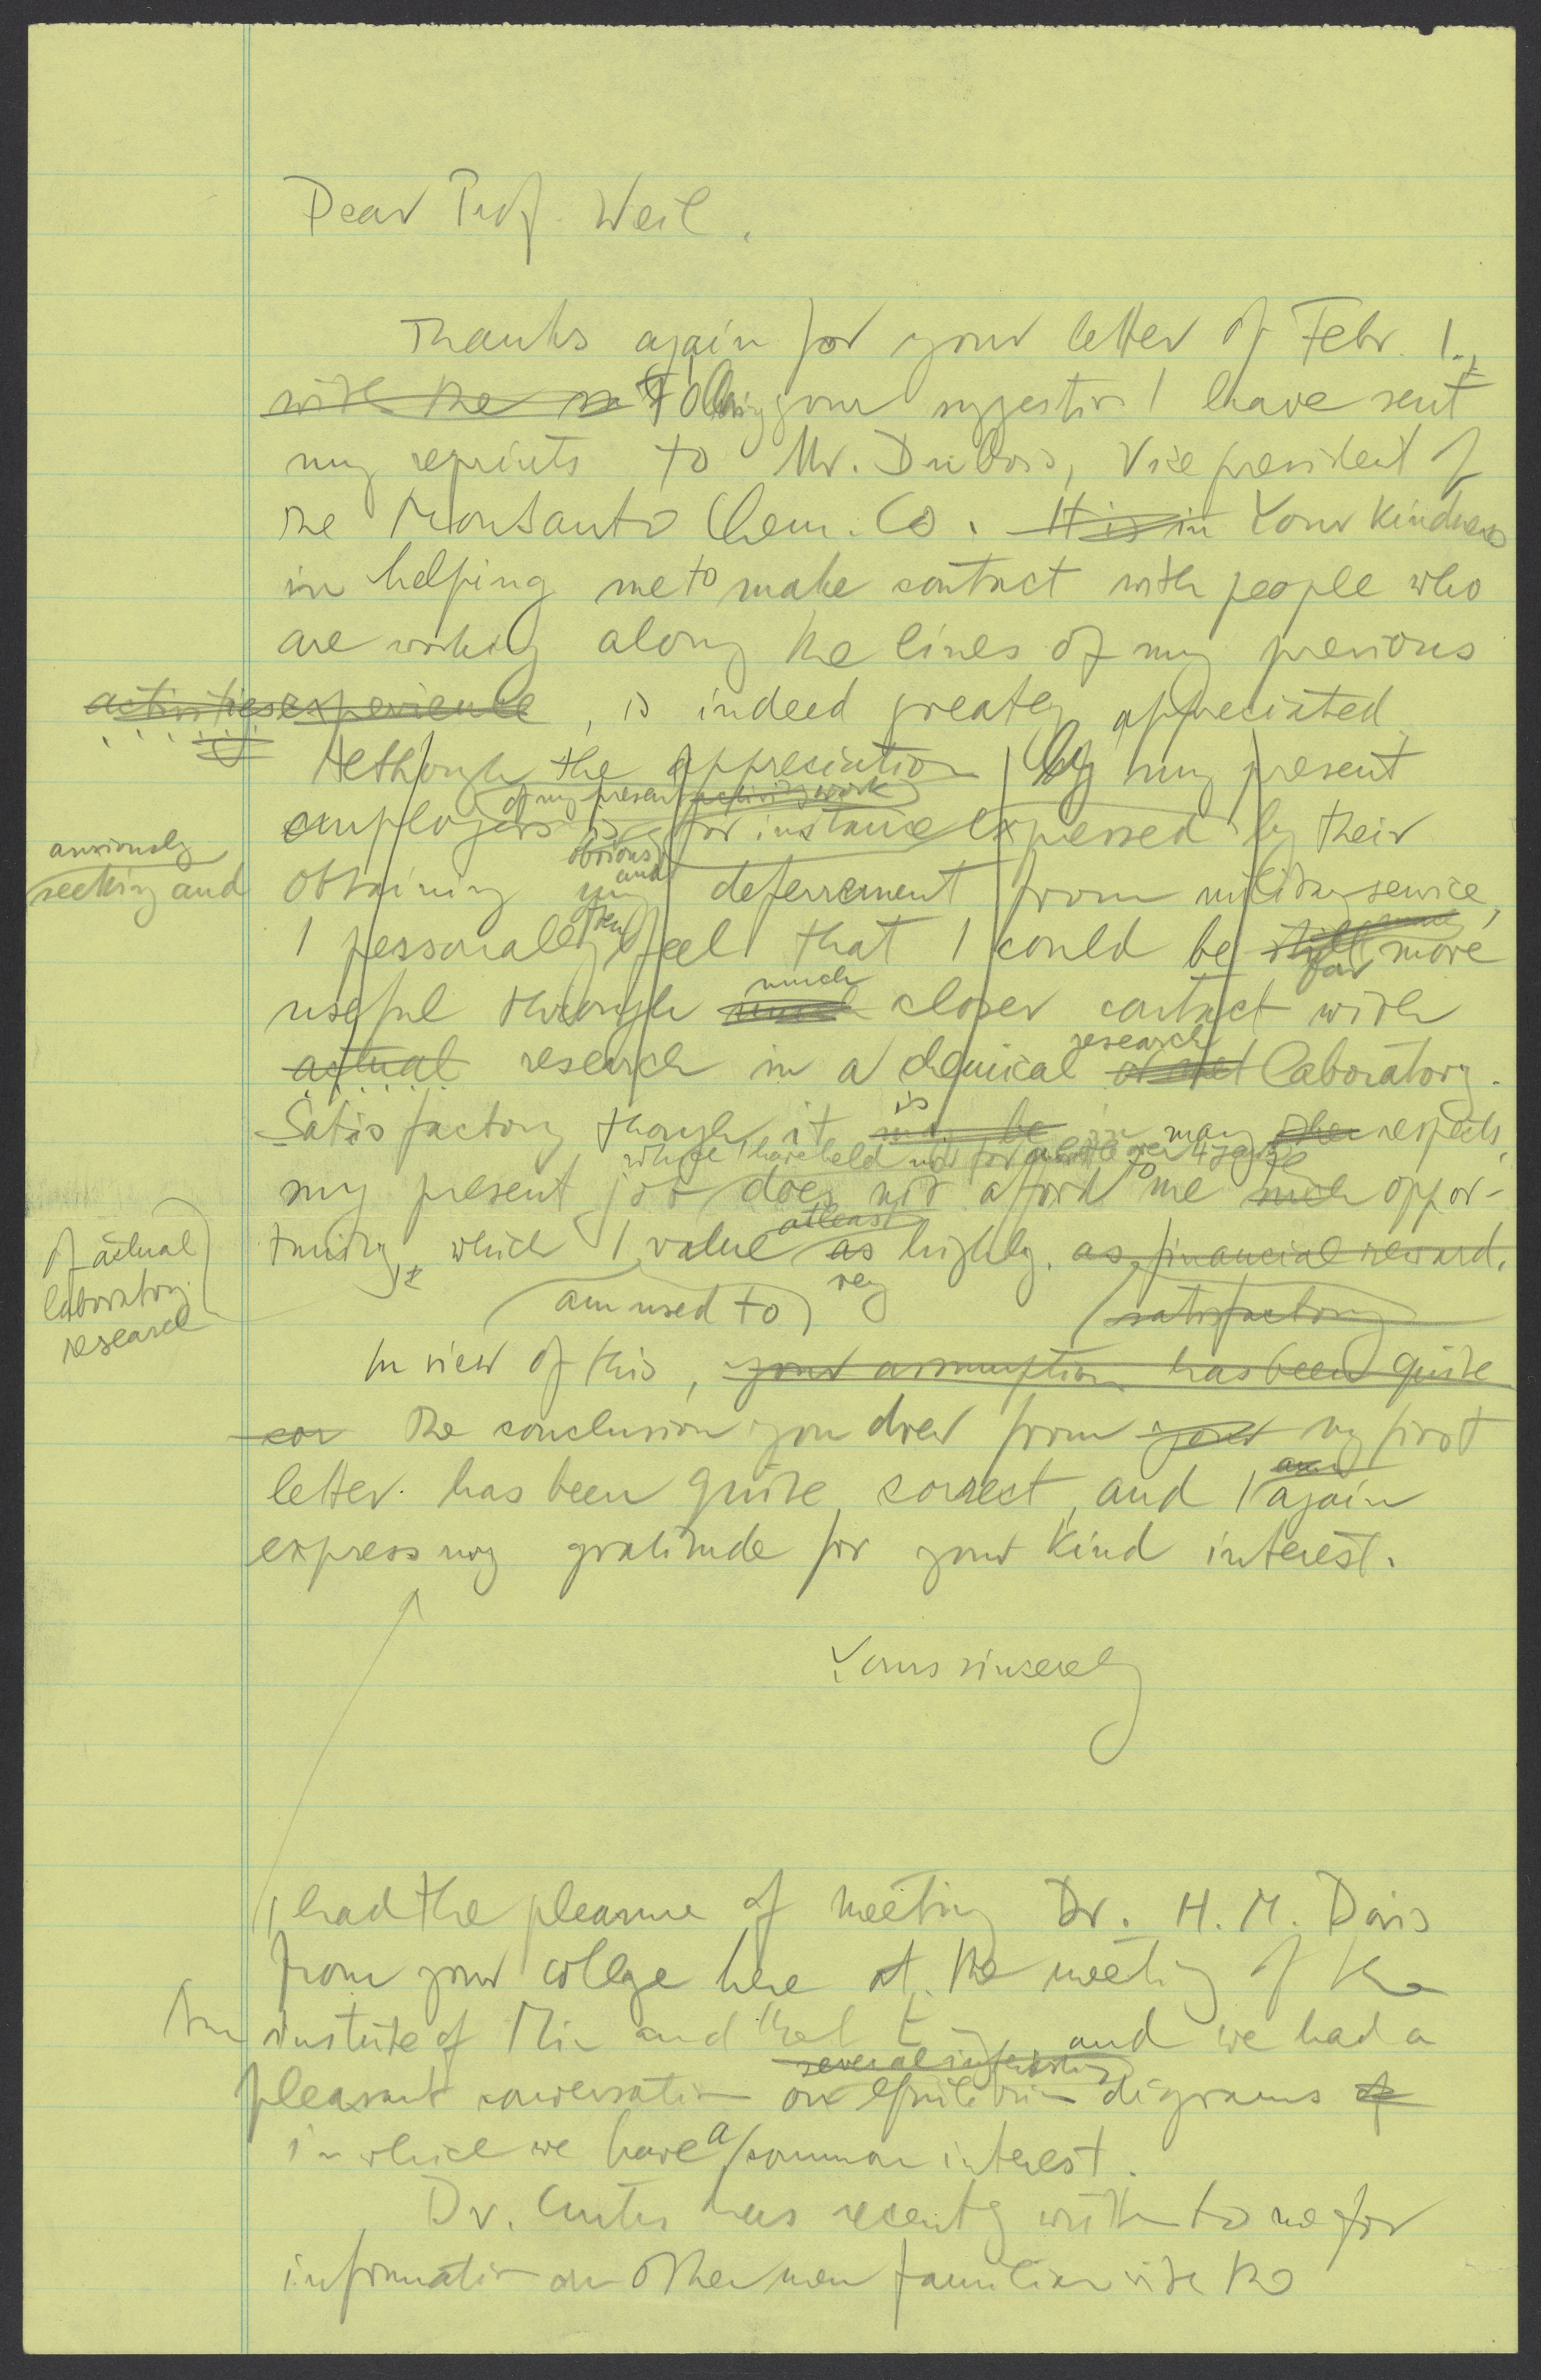 Dear Prof. Weil,
Thanks again for your letter of Febr. 1.,
with the Following your suggestion I have sent
my reprints to Mr. DuBois, Vice president of
the Monsanto Chem. Co. It is in Your kindness
in helping me to make contact with people who
are working along the lines of my previous
activities experience, is indeed greatly appreciated
Although the appreciation by my present
of my present activity work
employers is for instance expressed by their
anxiously
obvious
seeking and obtaining my and deferrement from military service,
I personally feel that I could be still more
far
much
useful through much closer contact with
research
actual research in a chemical laboratory.
is
Satisfactory though it may be in many other respects,
which I have held now for over 4 years
my present job does not afford to me such oppor-
at least
tunity, which I value as highly. as financial reward.
of actual
laboratory
research
very
am used to
satisfactory
In view of this, your assumption has been quite
cor the conclusion you drew from your my first
letter has been quite correct, and I again
express my gratitude for your kind interest.
Yours sincerely
I had the pleasure of meeting Dr. H. M. Davis
from your college here at the meeting of the
Am institute of Min and Met E and we had a
several interesting
pleasant conversation on equilibrium diagrams of
in which we have a common interest.
Dr. Curtis has recently written to me for
information on other men familiar with the